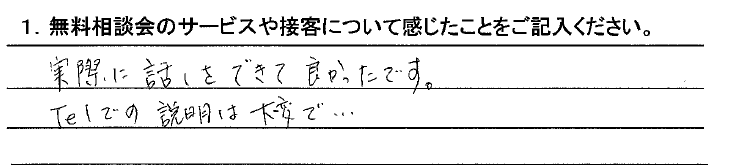 1. 無料相談会のサービスや接客について感じたことをご記入ください。
実際に話しをできて良かったです。
Telでの説明は大変で…